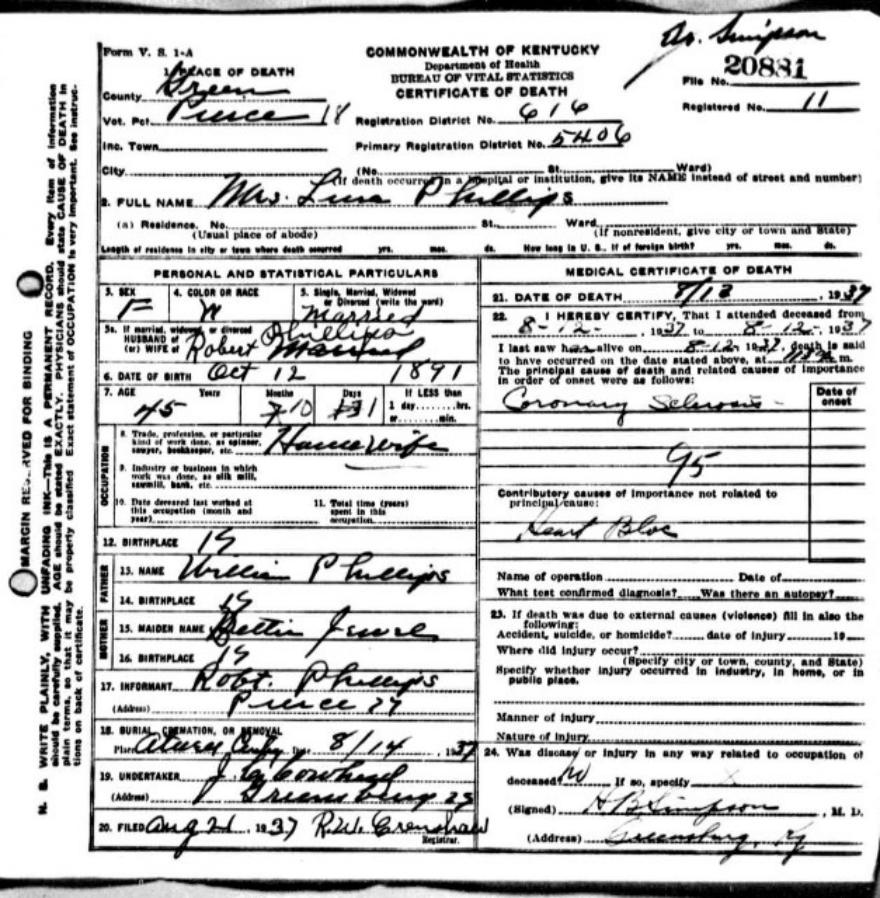 Dr. Simpson
Form V. S. 1-A
COMMONWEALTH OF KENTUCKY
Department of Health
BUREAU OF VITAL STATISTICS
CERTIFICATE OF DEATH
File No. 20881
Registered No. 11
1. PLACE OF DEATH
County Green
Vot. Pct. Pierce 18
Registration District No. 616
Inc. Town
Primary Registration District No. 5406
City (No. St. Ward)
(If death occurred in a hospital or institution, give its NAME instead of street and number)
2. FULL NAME Mrs. Phillips
(a) Residence. No. St. Ward
(Usual place of abode) (If nonresident, give city or town and State)
Length of residence in city or town where death occurred yrs. mos. ds. How long in U. S., if of foreign birth? yrs. mos. ds.
PERSONAL AND STATISTICAL PARTICULARS
3. SEX F
4. COLOR OR RACE W
5. Single, Married, Widowed or Divorced (write the word) Married
5a. If married, widowed, or divorced
HUSBAND of
(or) WIFE of Robert Phillips Married
6. DATE OF BIRTH Oct 12 1891
7. AGE Years Months Days If LESS than
45 10 1 1 day hrs.
or min.
OCCUPATION
8. Trade, profession, or particular
kind of work done, as spinner,
sawyer, bookkeeper, etc. House wife
9. Industry or business in which
work was done, as silk mill,
sawmill, bank, etc.
10. Date deceased last worked at
this occupation (month and
year)
11. Total time (years)
spent in this
occupation
12. BIRTHPLACE Ky
FATHER
13. NAME William Phillips
14. BIRTHPLACE Ky
MOTHER
15. MAIDEN NAME Bettie
16. BIRTHPLACE Ky
17. INFORMANT Robt. Phillips
(Address) Pierce Ky
18. BURIAL, CREMATION, OR REMOVAL
Place Date 8/14, 1937
19. UNDERTAKER
(Address) Greensburg Ky
20. FILED Aug 21 1937 R.W. Crenshaw
Registrar.
MEDICAL CERTIFICATE OF DEATH
21. DATE OF DEATH 8/12, 1937
22. I HEREBY CERTIFY, That I attended deceased from
8-12-, 1937 to 8-12-, 1937
I last saw her alive on 8-12-1937, death is said
to have occurred on the date stated above, at m.
The principal cause of death and related causes of importance
in order of onset were as follows:
Date of onset
Coronary Sclerosis
95
Contributory causes of importance not related to
principal cause:
Heart Bloc
Name of operation Date of
What test confirmed diagnosis? Was there an autopsy?
23. If death was due to external causes (violence) fill in also the
following:
Accident, suicide, or homicide? date of injury 19
Where did injury occur?
(Specify city or town, county, and State)
Specify whether injury occurred in industry, in home, or in
public place.
Manner of injury
Nature of injury
24. Was disease or injury in any way related to occupation of
deceased? No If so, specify
(Signed) H B Simpson, M. D.
(Address) Greensburg, Ky
MARGIN RESERVED FOR BINDING
N. B. WRITE PLAINLY, WITH UNFADING INK—This is A PERMANENT RECORD. Every item of information
should be carefully supplied. AGE should be stated EXACTLY. PHYSICIANS should state CAUSE OF DEATH in
plain terms, so that it may be properly classified. Exact statement of OCCUPATION is very important. See instruc-
tions on back of certificate.